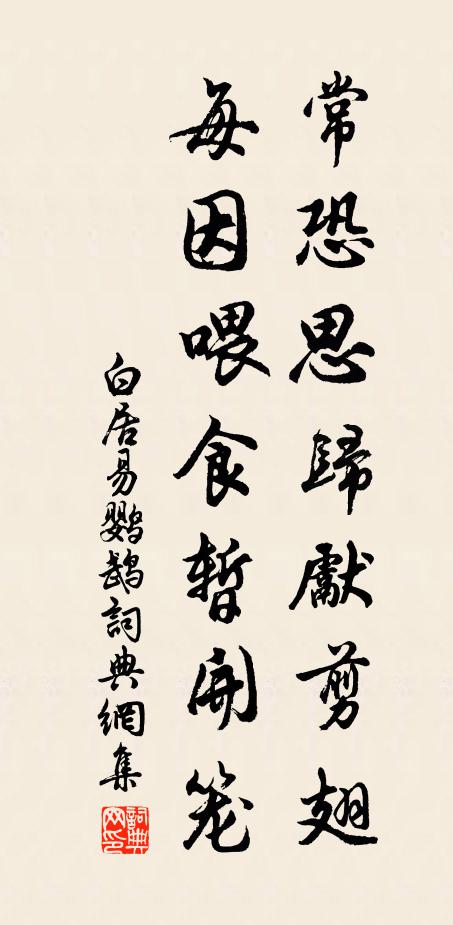 常恐思歸獻剪翅
每因喂食暫開笼
白居易鸚鵡詞典網集
詞典网印